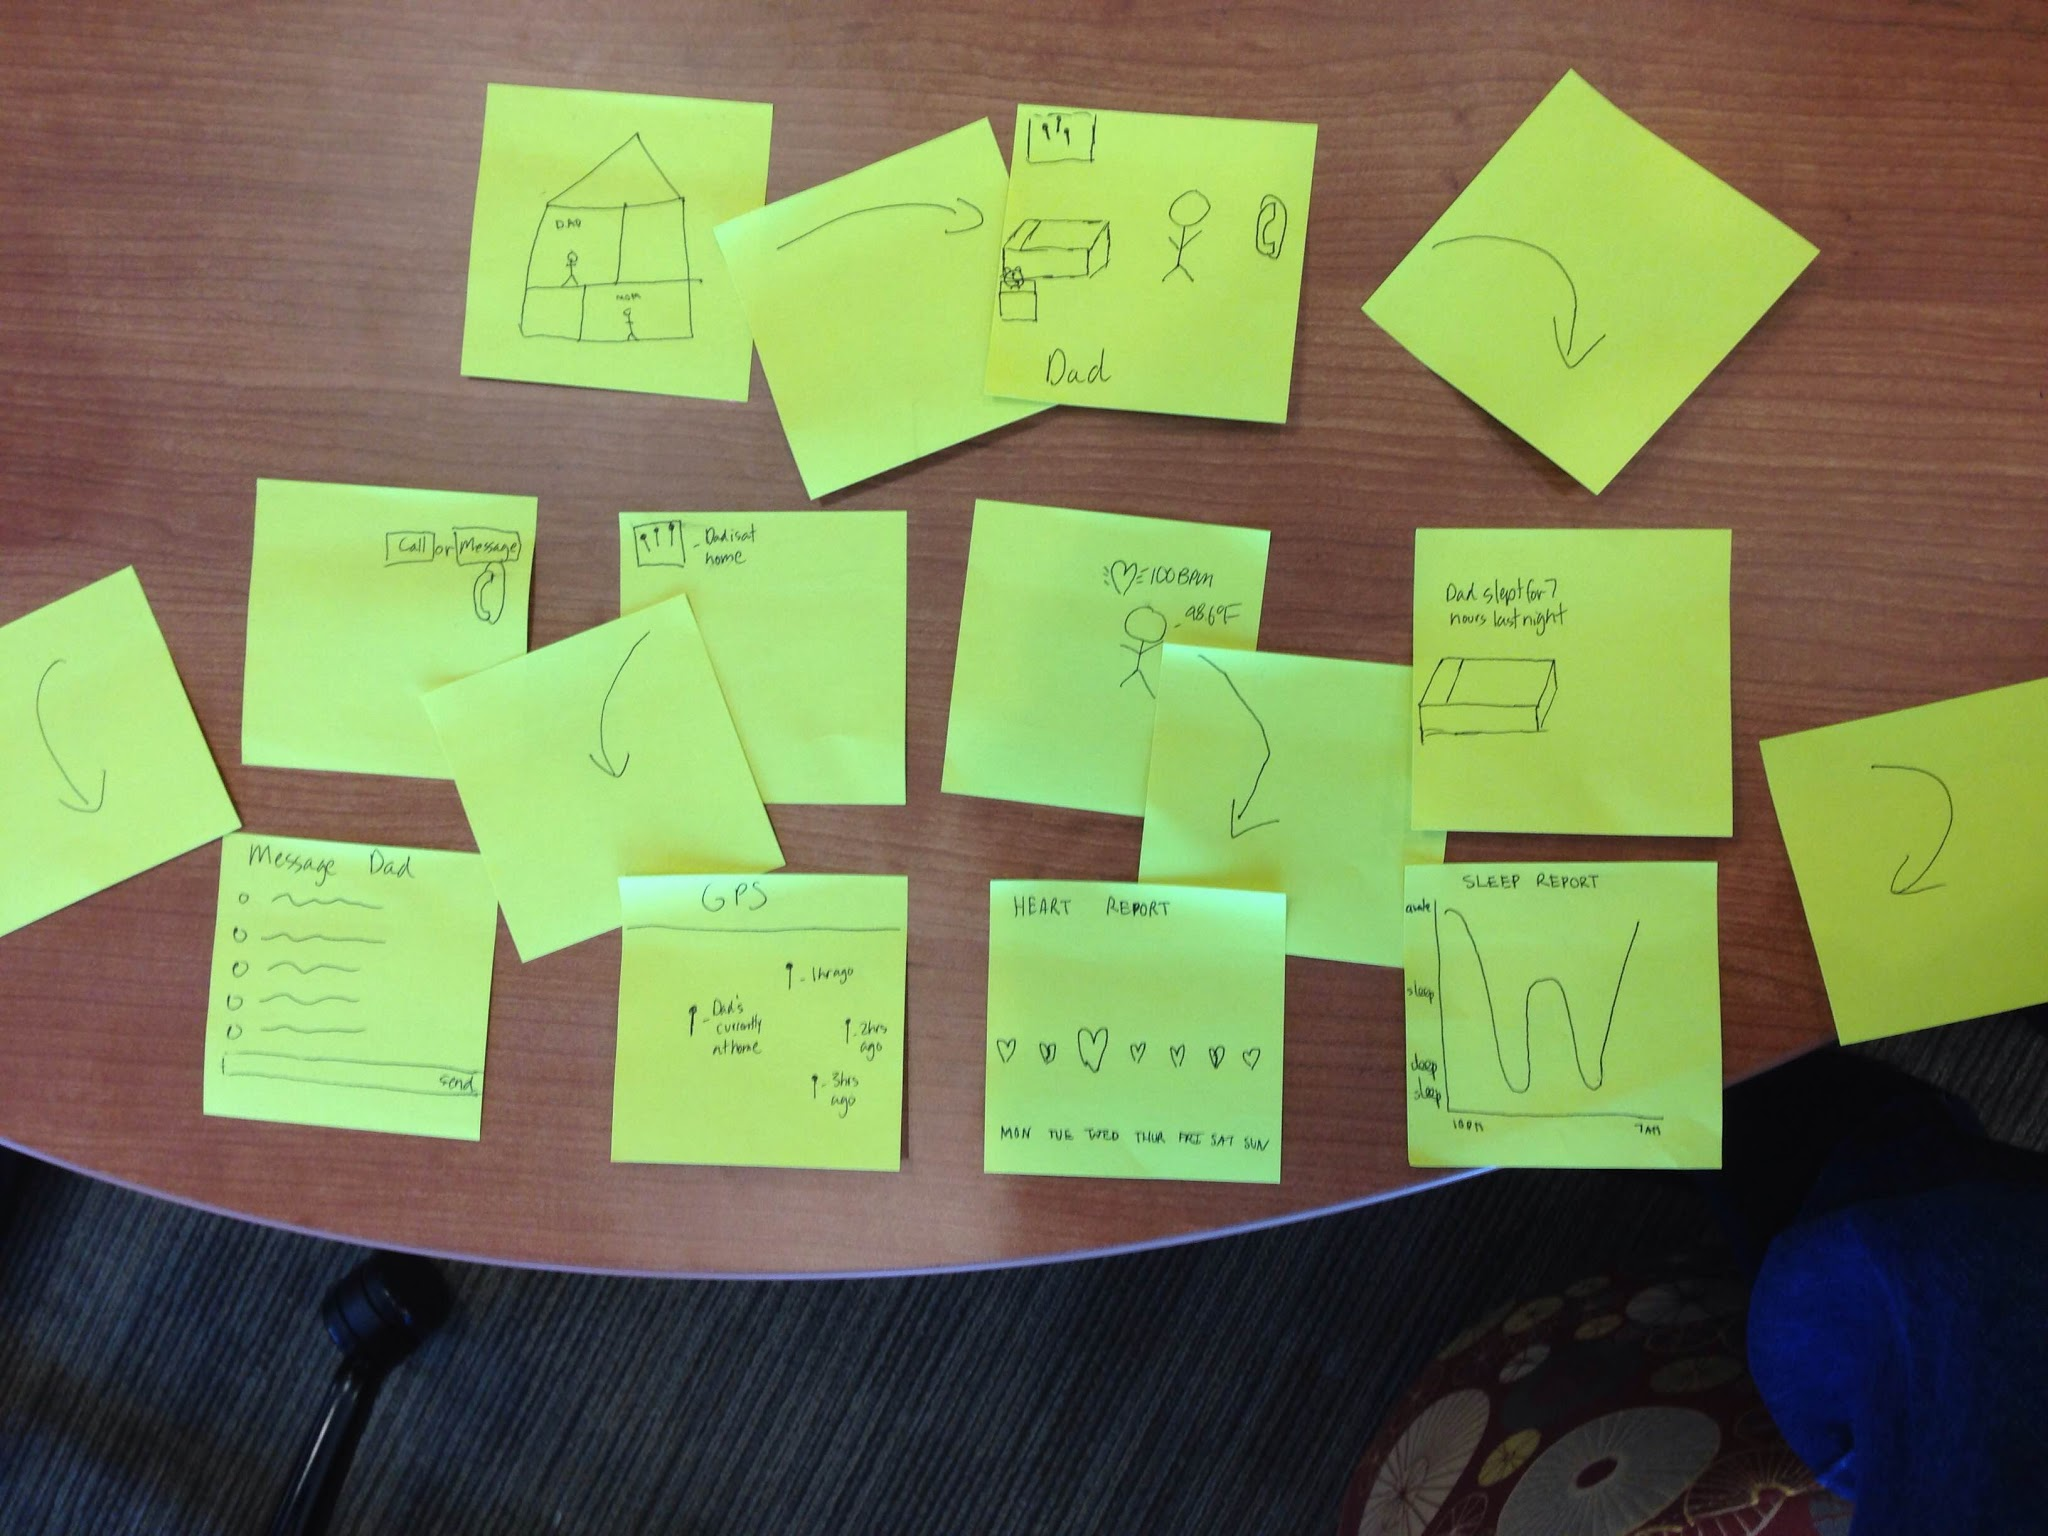 DAD
MOM
Dad
Call or Message
Dad is at
home
100 BPM
98.6°F
Dad slept for 7
hours last night
Message Dad
send
GPS
1hr ago
Dad's
currently
at home
2hrs
ago
3hrs
ago
HEART REPORT
MON TUE WED THUR FRI SAT SUN
SLEEP REPORT
awake
sleep
deep
sleep
10PM 7AM